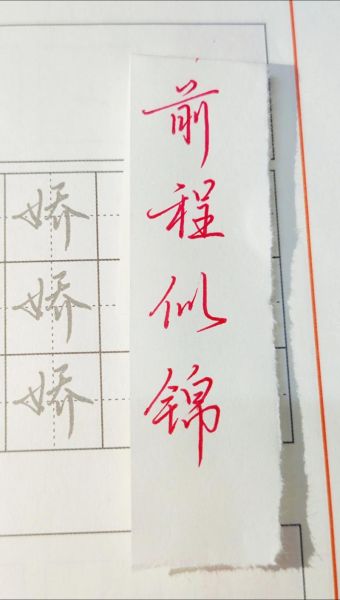 前程似锦
娇
娇
娇